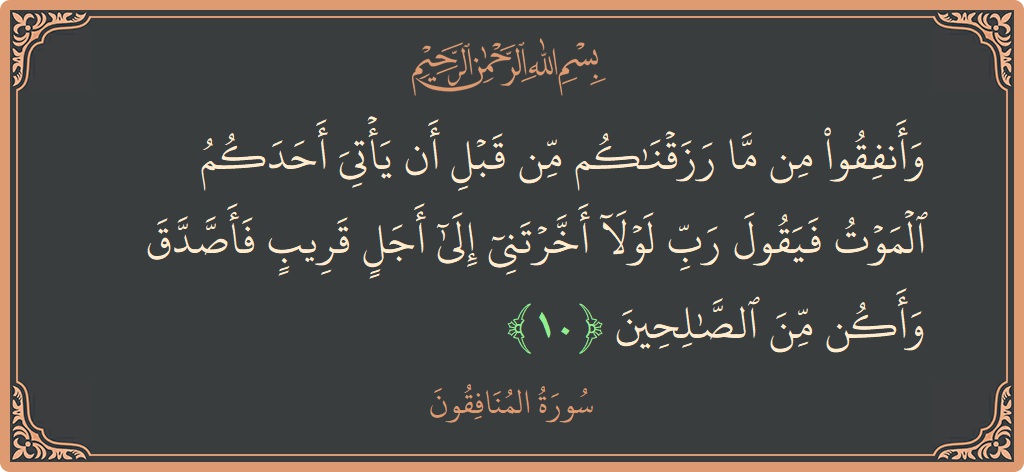 بِسْمِ اللهِ الرَّحْمٰنِ الرَّحِيْمِ
وَأَنفِقُوا۟ مِن مَّا رَزَقْنَـٰكُم مِّن قَبْلِ أَن يَأْتِىَ أَحَدَكُمُ
ٱلْمَوْتُ فَيَقُولَ رَبِّ لَوْلَآ أَخَّرْتَنِىٓ إِلَىٰٓ أَجَلٍ قَرِيبٍ فَأَصَّدَّقَ
وَأَكُن مِّنَ ٱلصَّـٰلِحِينَ ﴿١٠﴾
سُورَةُ المُنَافِقُونَ